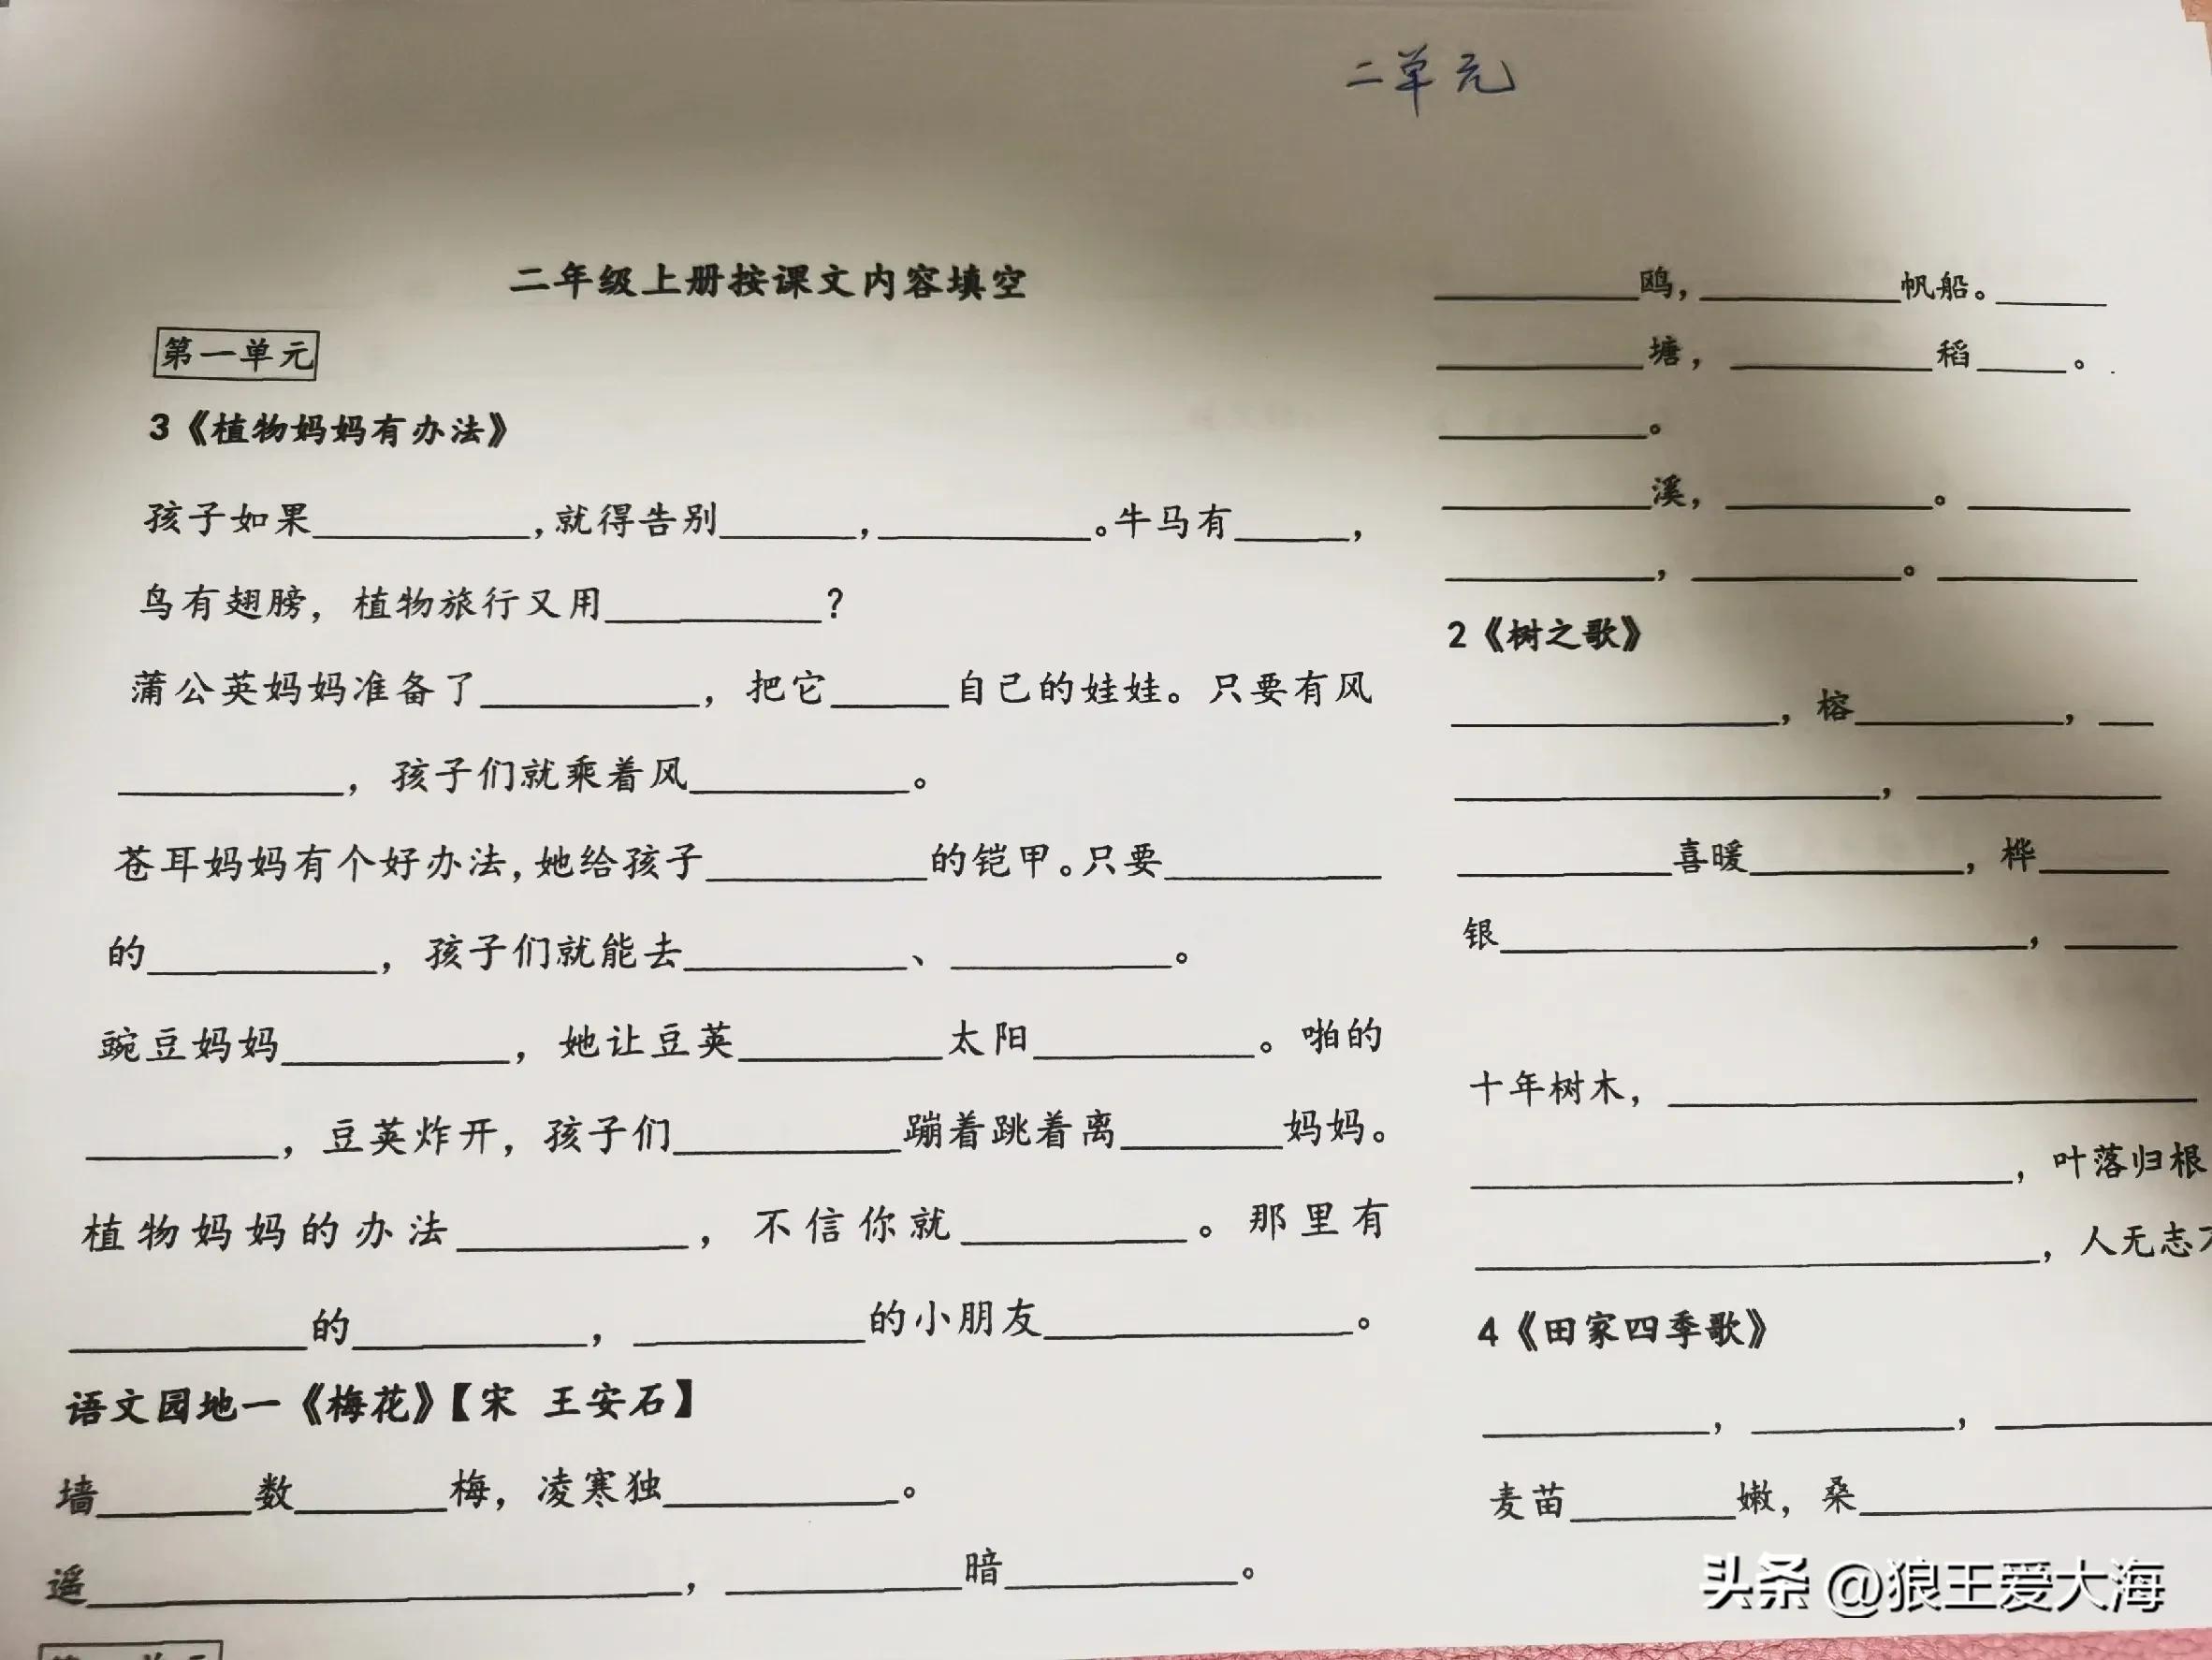 二单元
二年级上册按课文内容填空
第一单元
3《植物妈妈有办法》
孩子如果__________,就得告别______,__________。牛马有_____,
鸟有翅膀，植物旅行又用__________?
蒲公英妈妈准备了__________，把它_____自己的娃娃。只要有风
__________，孩子们就乘着风__________。
苍耳妈妈有个好办法,她给孩子__________的铠甲。只要__________
的__________，孩子们就能去__________、__________。
豌豆妈妈__________，她让豆荚_________太阳__________。啪的
_________，豆荚炸开，孩子们__________蹦着跳着离_______妈妈。
植物妈妈的办法__________，不信你就__________。那里有
__________的__________，__________的小朋友_____________。
语文园地一《梅花》【宋 王安石】
墙_______数_______梅，凌寒独__________。
遥__________________________，__________暗__________。
_________鸥，_________帆船。_____
_________塘，_________稻____。
_________。
_________溪，_________。_______
_________，_________。_________
2《树之歌》
______________，榕_________，__
__________________，__________
_________喜暖_________，桦_____
银______________________，_____
十年树木，______________________
_______________________，叶落归根
________________________，人无志
4《田家四季歌》
_________，_________，_________
麦苗_______嫩，桑_______________
头条 @狼王爱大海